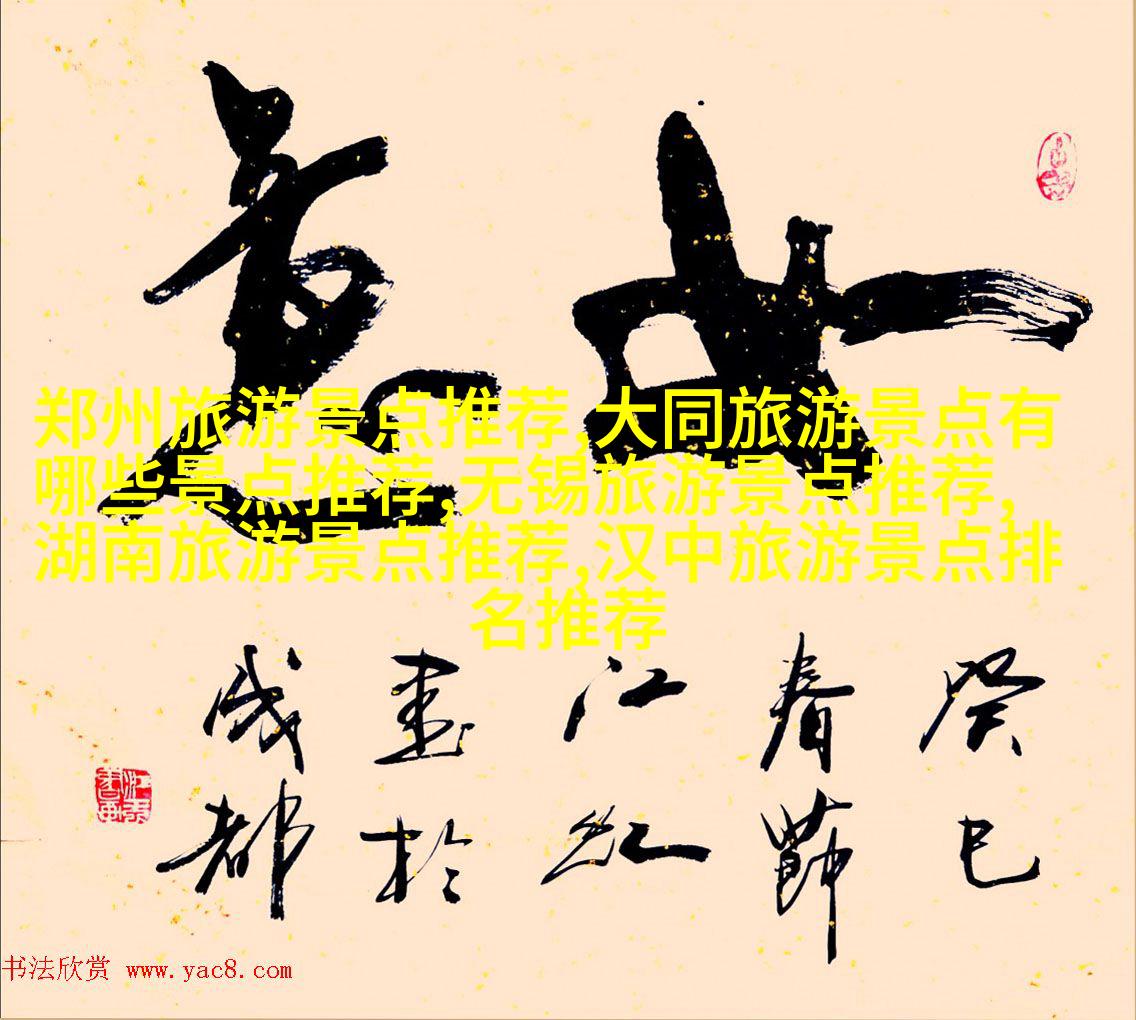 如意
郑州旅游景点推荐,大同旅游景点有
哪些景点推荐,无锡旅游景点推荐,
湖南旅游景点推荐,汉中旅游景点排
名推荐
癸巳
春節
江红
書於
成都
书法欣赏 www.yac8.com